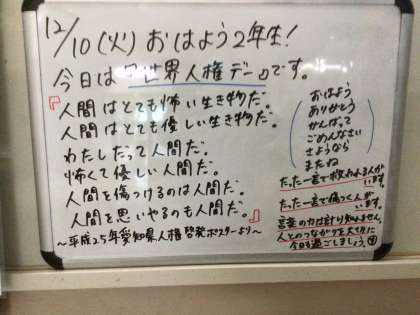 12/10(火)おはよう2年生!
今日は『世界人権デー』です。
『人間はとても怖い生き物だ。
人間はとても優しい生き物だ。
わたしだって人間だ。
怖くて優しい人間だ。
人間を傷つけるのは人間だ。
人間を思いやるのも人間だ。』
~平成25年愛知県人権啓発ポスターより~
(おはよう
ありがとう
がんばって
ごめんなさい
さようなら
またね)
たった一言で救われる人がいます。
たった一言で傷つく人がいます。
言葉の力は計り知れません。
人とのつながりを大切に
今日も過ごしましょう